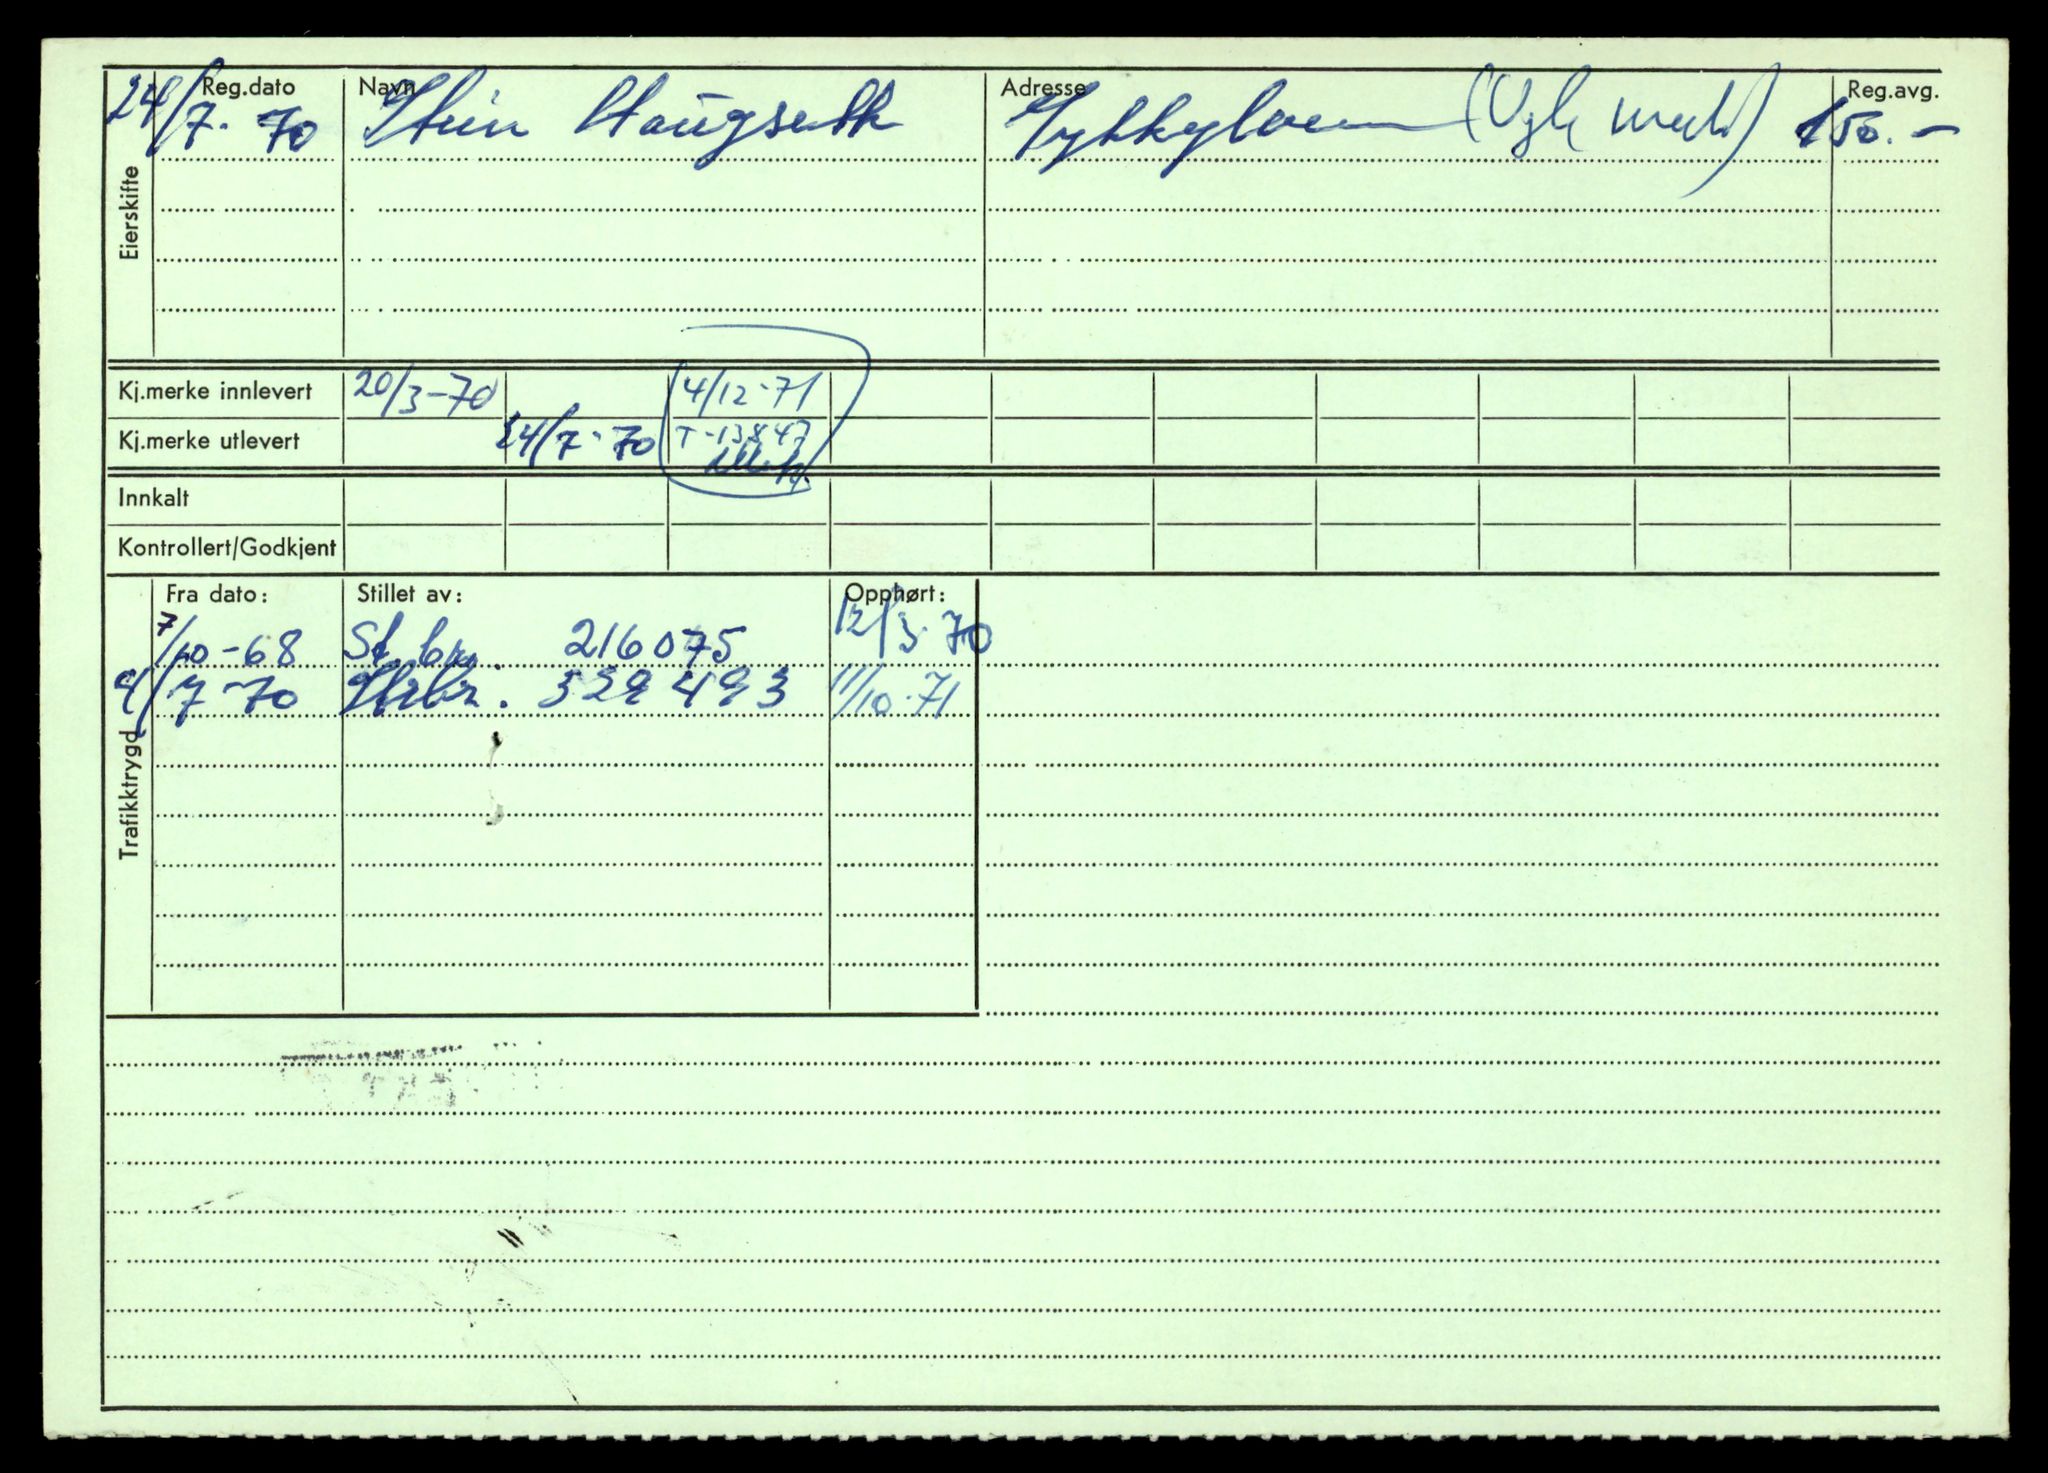 Reg.dato Navn Adresse Reg.avg.
24/7. 70 Stein Haugseth Sykkylven 150.-
Eierskifte
Kj.merke innlevert 20/3-70 4/12-71
Kj.merke utlevert 24/7-70 T-13847
Innkalt
Kontrollert/Godkjent
Trafikktrygd
Fra dato: Stillet av: Opphørt:
7/10-68 St.br. 216075 12/3-70
9/7 70 Strbr. 529493 11/10-71